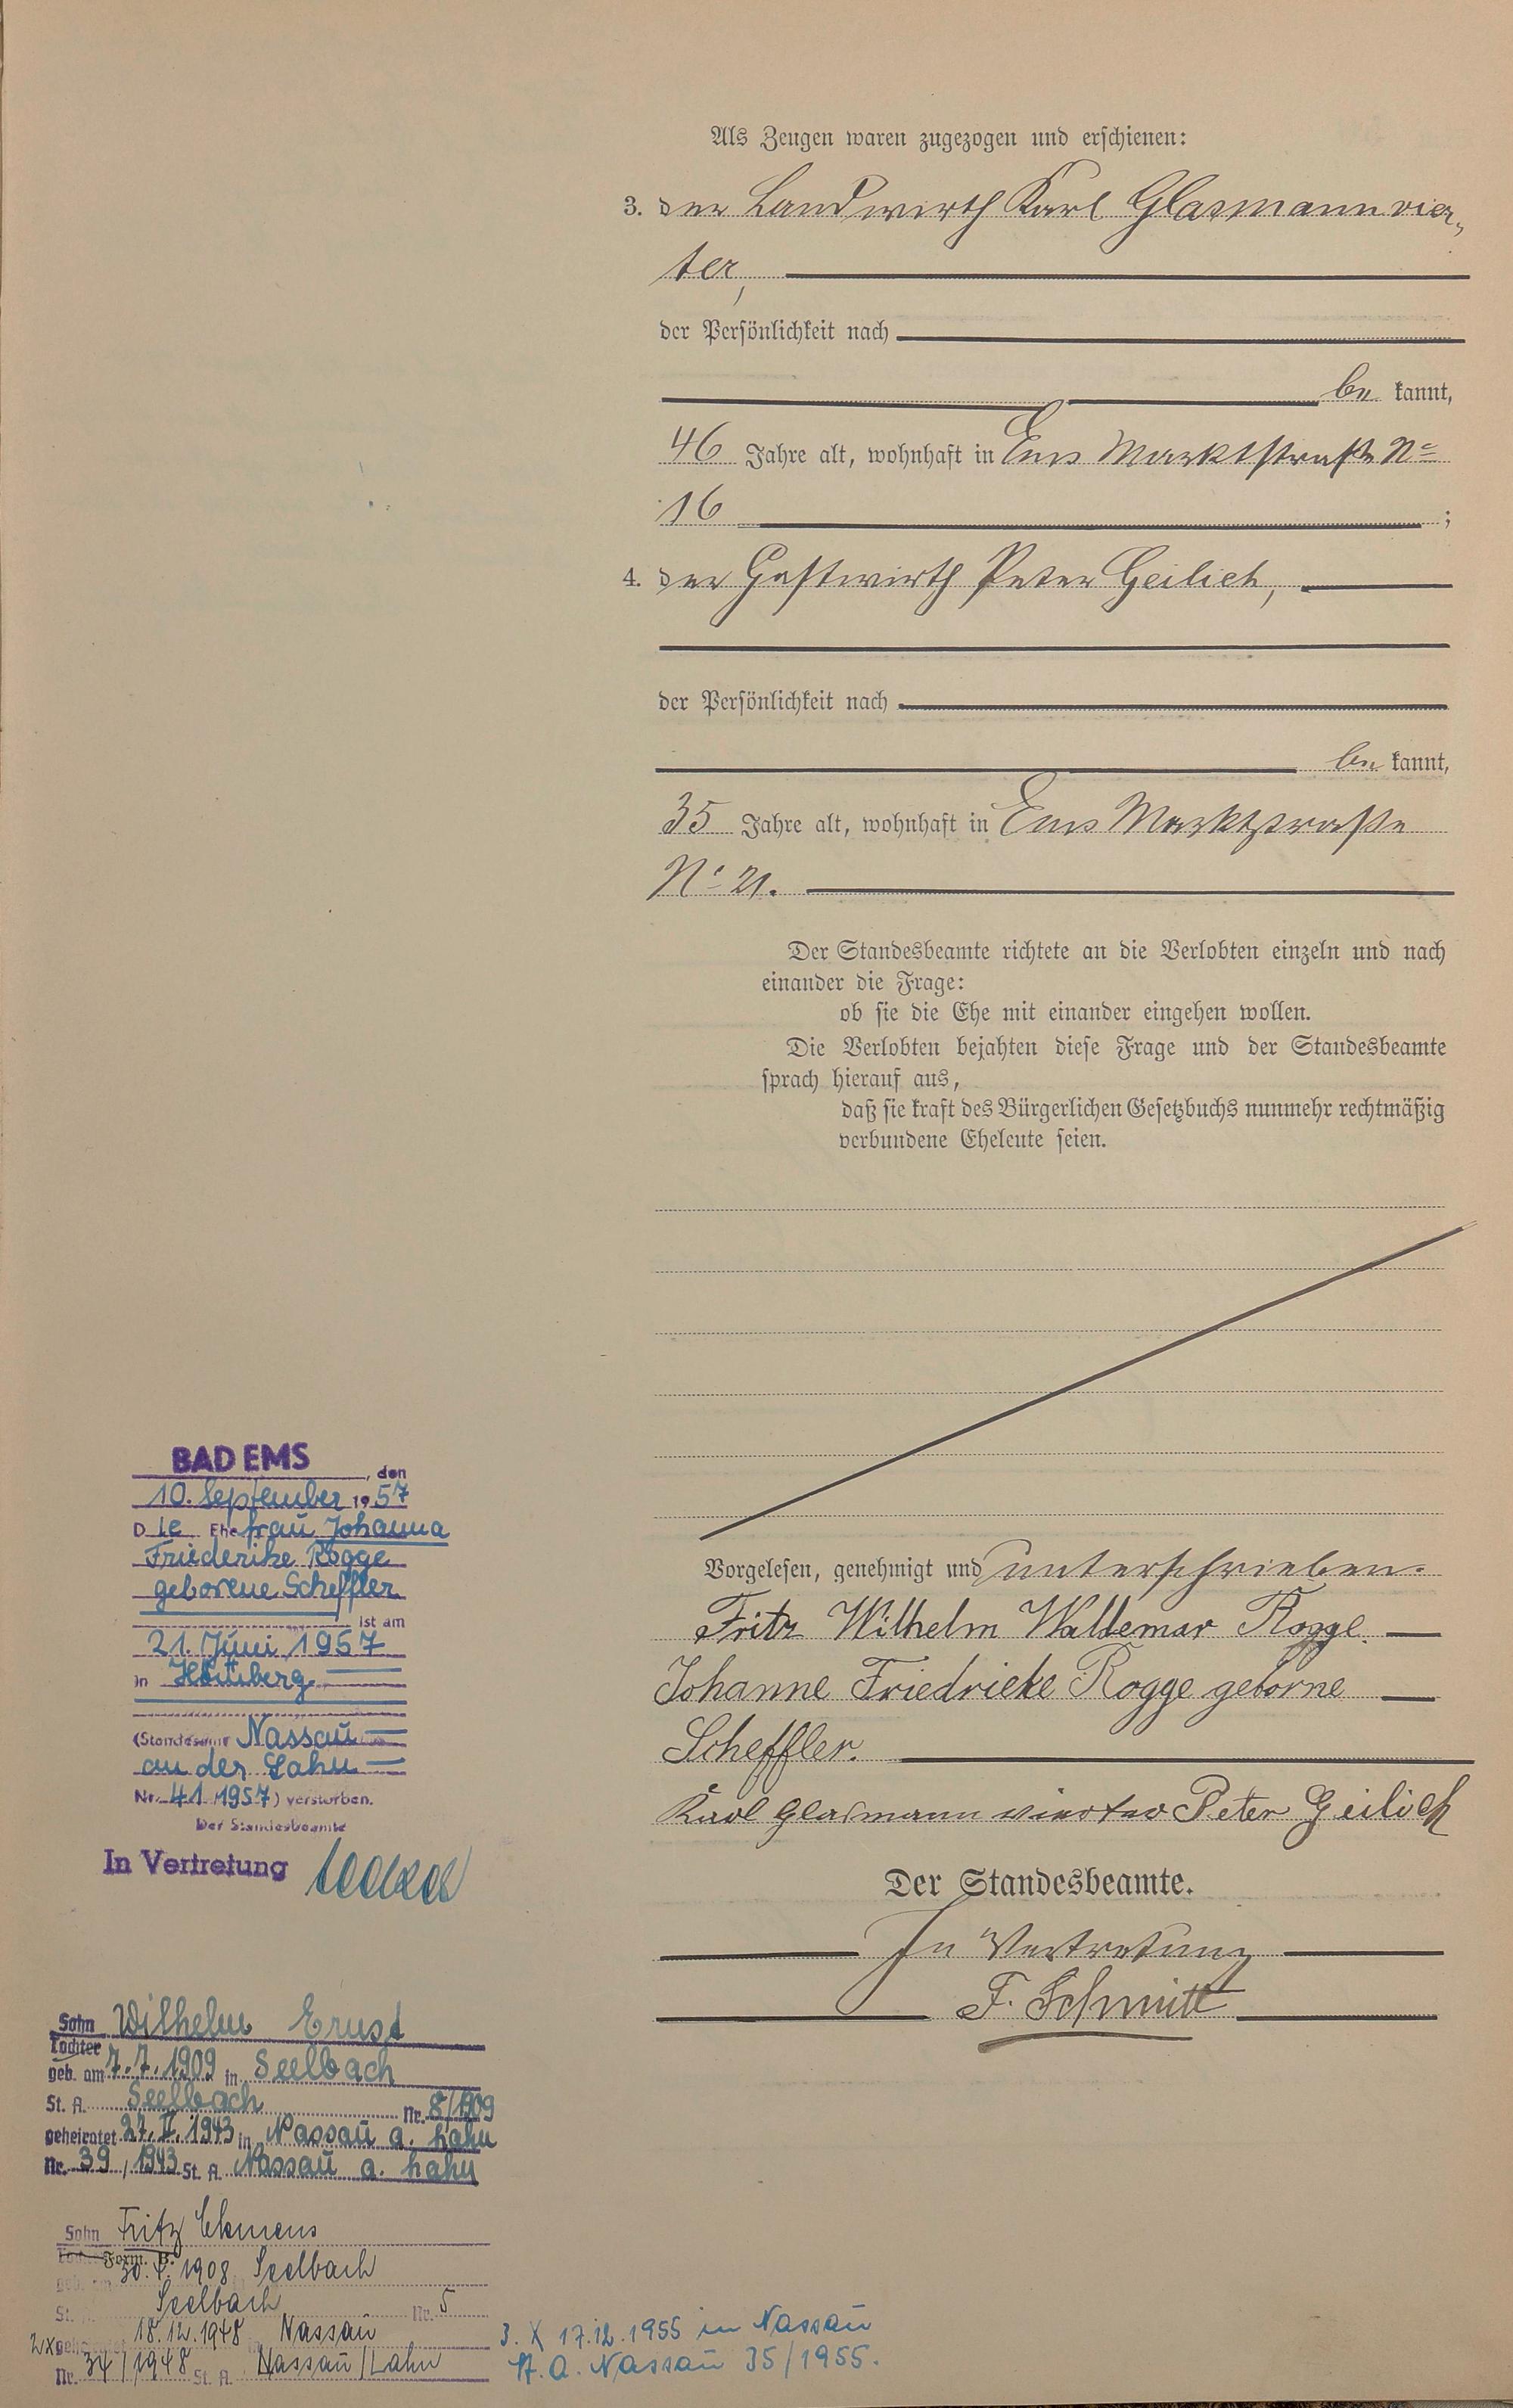 Als Zeugen waren zugezogen und erschienen:
3. der Landwirth Karl Glasmann vier-
ter,
der Persönlichkeit nach
be kannt,
46 Jahre alt, wohnhaft in Ems Marktstraße No
16 ;
4. der Gastwirth Peter Geilich,
der Persönlichkeit nach
be kannt,
35 Jahre alt, wohnhaft in Ems Marktstraße
No 21.
Der Standesbeamte richtete an die Verlobten einzeln und nach
einander die Frage:
ob sie die Ehe mit einander eingehen wollen.
Die Verlobten bejahten diese Frage und der Standesbeamte
sprach hierauf aus,
daß sie kraft des Bürgerlichen Gesetzbuchs nunmehr rechtmäßig
verbundene Eheleute seien.
Vorgelesen, genehmigt und unterschrieben.
Fritz Wilhelm Waldemar Rogge
Johanne Friedrieke Rogge geborne
Scheffler.
Karl Glasmann vierter Peter Geilich
Der Standesbeamte.
In Vertretung
F. Schmitt
BAD EMS, den
10. September 1957
Die Ehefrau Johanna
Friederike Rogge
geborene Scheffler
ist am
21. Juni 1957
in Hömberg
(Standesamt Nassau
an der Lahn
Nr. 41/1957) verstorben.
Der Standesbeamte
In Vertretung
Sohn Wilhelm Ernst
Tochter
geb. am 7.7.1909 in Seelbach
St. A. Seelbach Nr. 8/1909
geheiratet 27. II. 1943 in Nassau a. Lahn
Nr. 39/1943 St. A. Nassau a. Lahn
Sohn Fritz Clemens
Form. B.
30. 1908 Seelbach
St. Seelbach Nr. 5
2x geheiratet 18.12.1948 Nassau
Nr. 34/1948 St. A. Nassau/Lahn
3. X 17.12.1955 in Nassau
St. A. Nassau 35/1955.